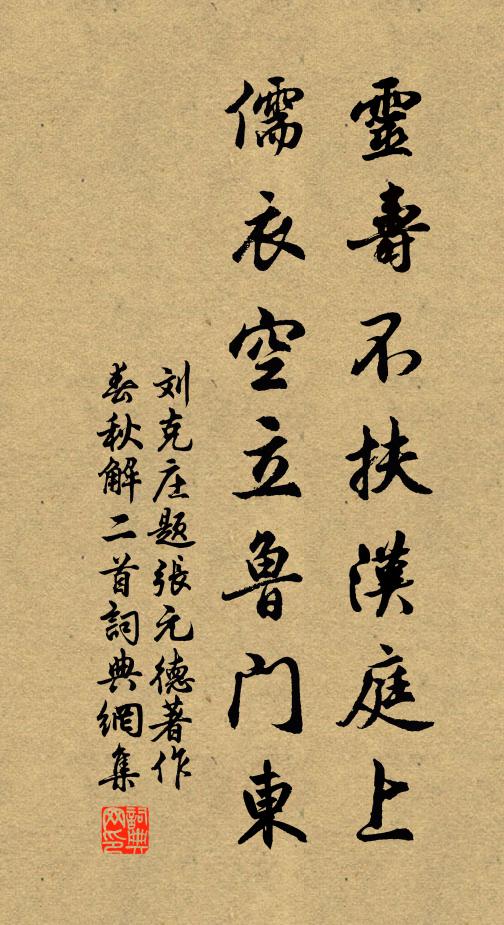 靈壽不扶漢庭上
儒衣空立魯门東
刘克庄题張元德著作
春秋解二首詞典網集
詞典网印